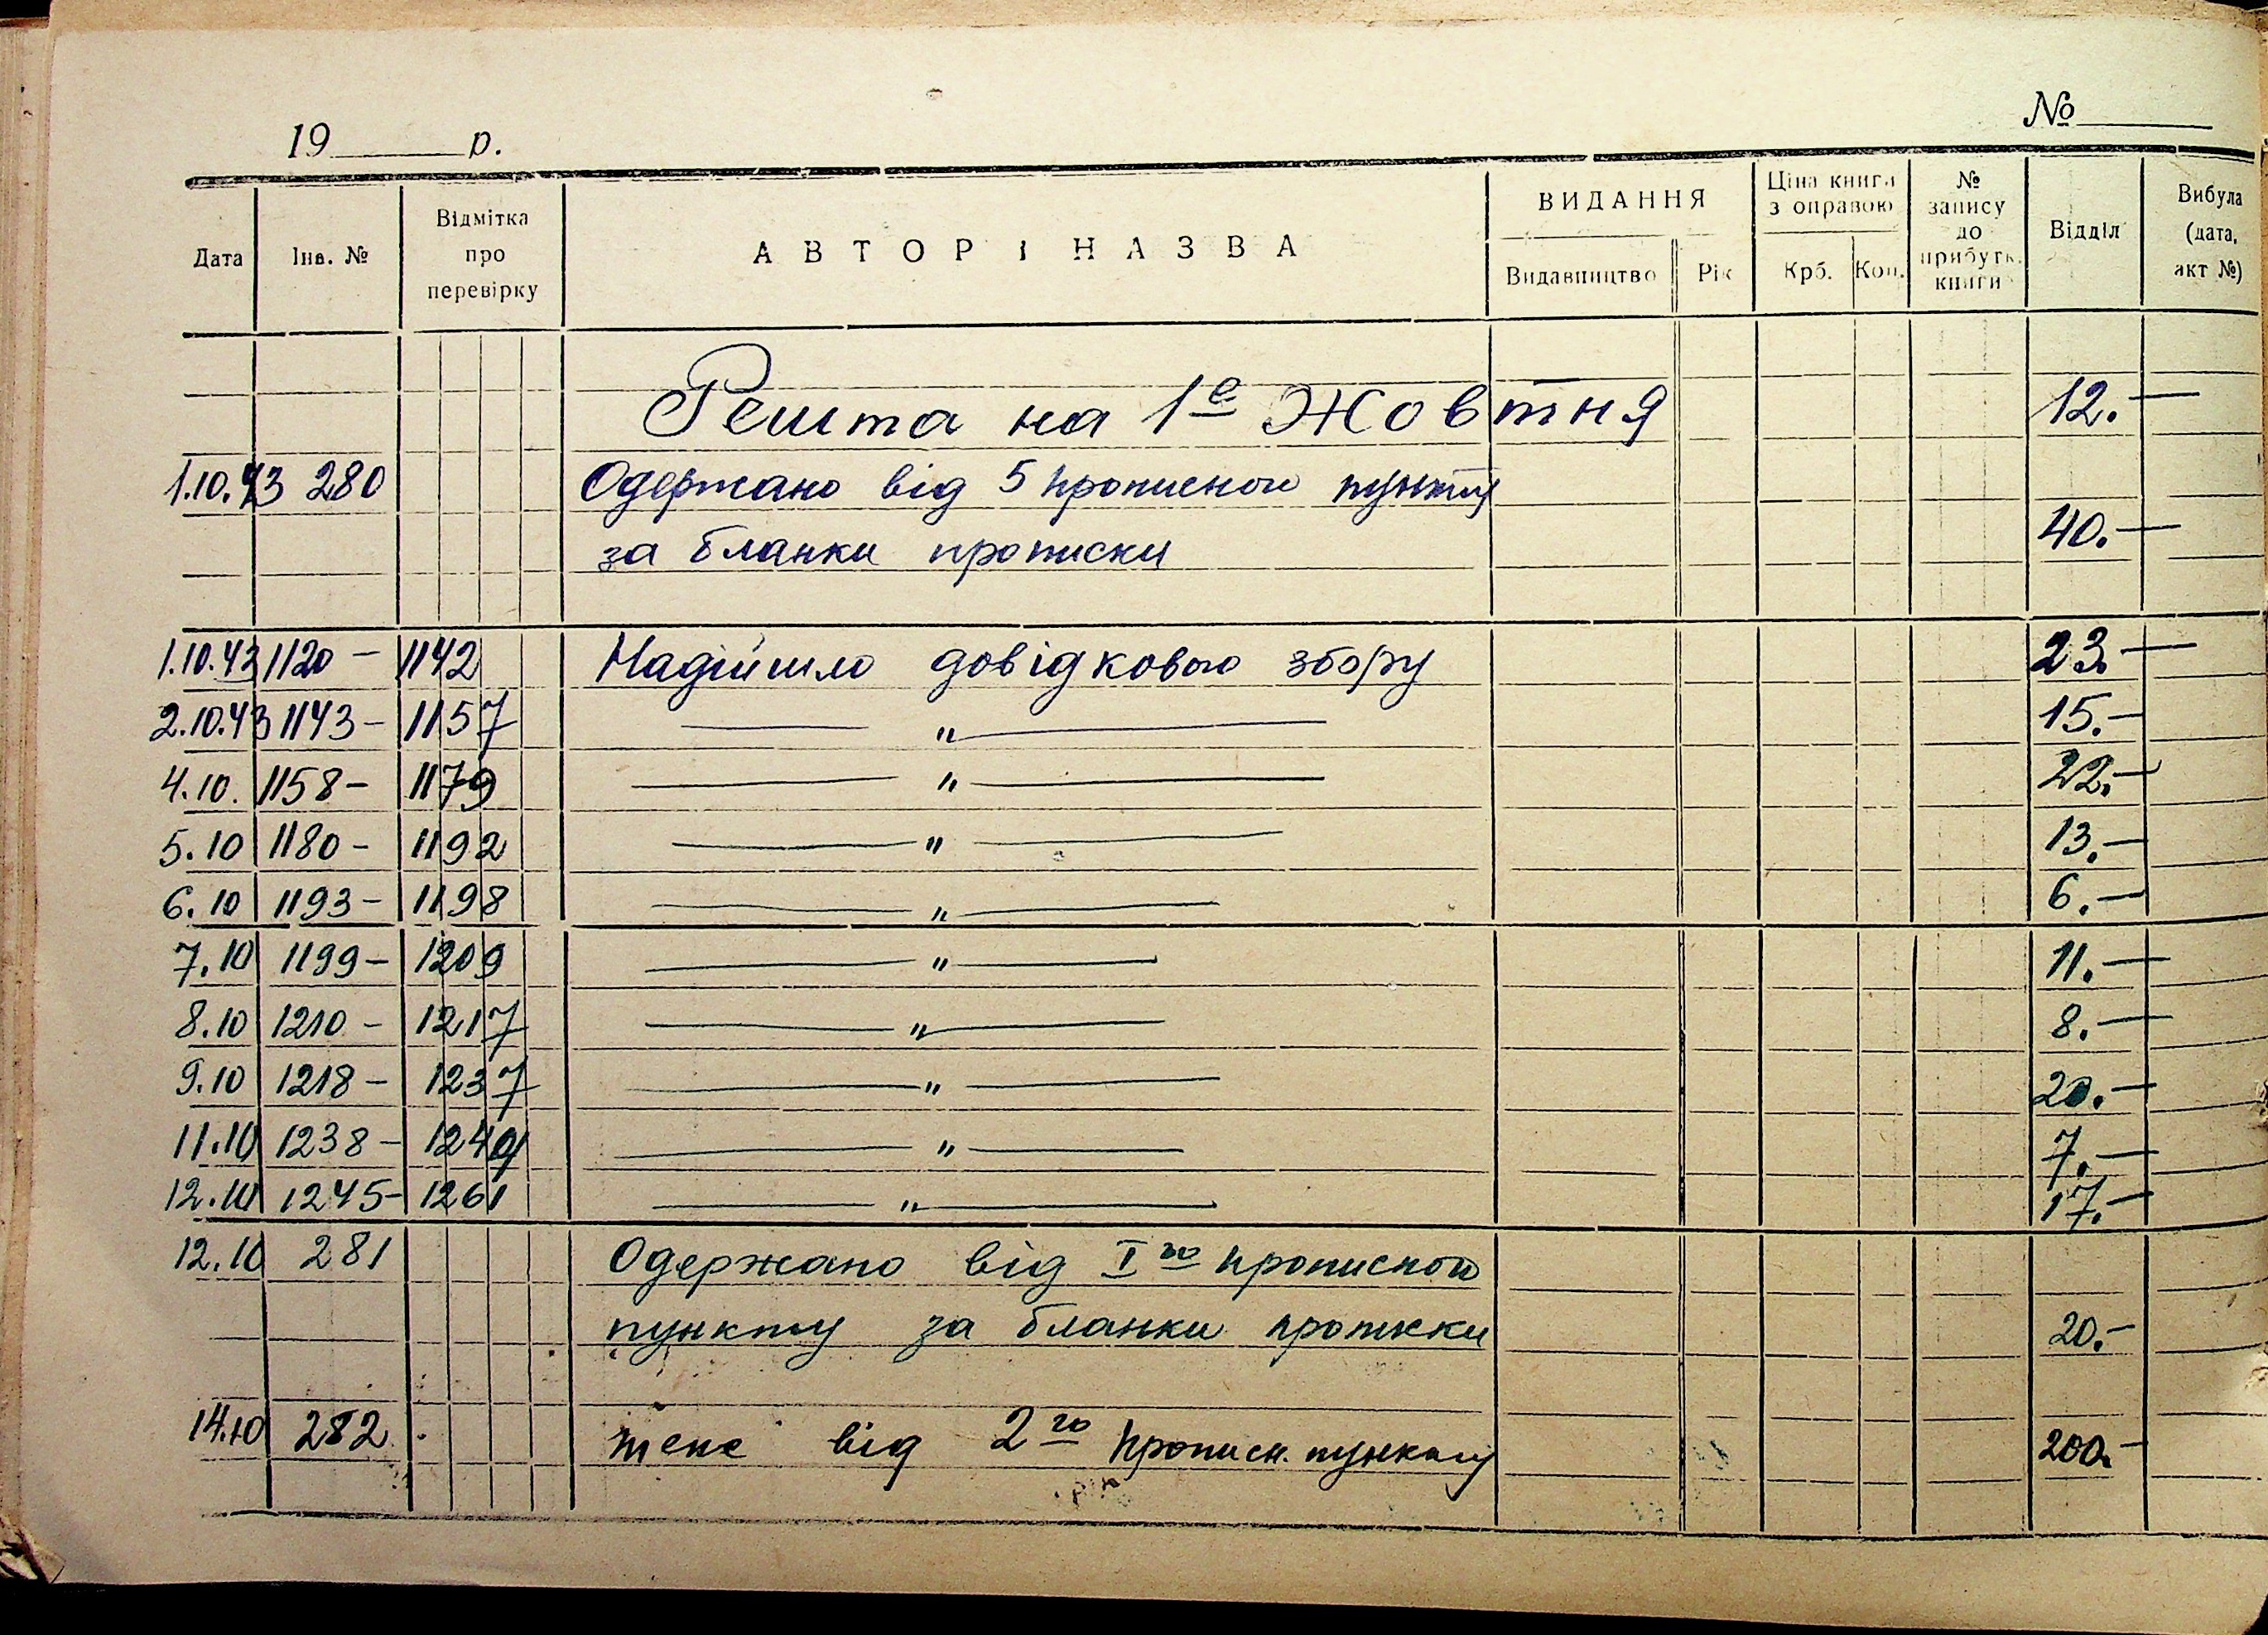 19 р. №
Дата Інв. № Відмітка про перевірку АВТОР І НАЗВА ВИДАННЯ Видавництво Рік Ціна книги з оправою Крб. Коп. № запису до прибутк. книги Відділ Вибула (дата, акт №)
Решта на 1е Жовтня 12.—
1.10.43 280 Одержано від 5 прописного пункту
за бланки прописки 40.—
1.10.43 1120 — 1142 Надійшло довідкового збору 23.—
2.10.43 1143 — 1157 — " — 15.—
4.10. 1158 — 1179 — " — 22.—
5.10 1180 — 1192 — " — 13.—
6.10 1193 — 1198 — " — 6.—
7.10 1199 — 1209 — " — 11.—
8.10 1210 — 1217 — " — 8.—
9.10 1218 — 1237 — " — 20.—
11.10 1238 — — " — 7.—
12.10 1245 — 1261 — " — 17.—
12.10 281 Одержано від I го прописного
пункту за бланки прописки 20.—
14.10 282 теж від 2 го прописн. пункту 200.—